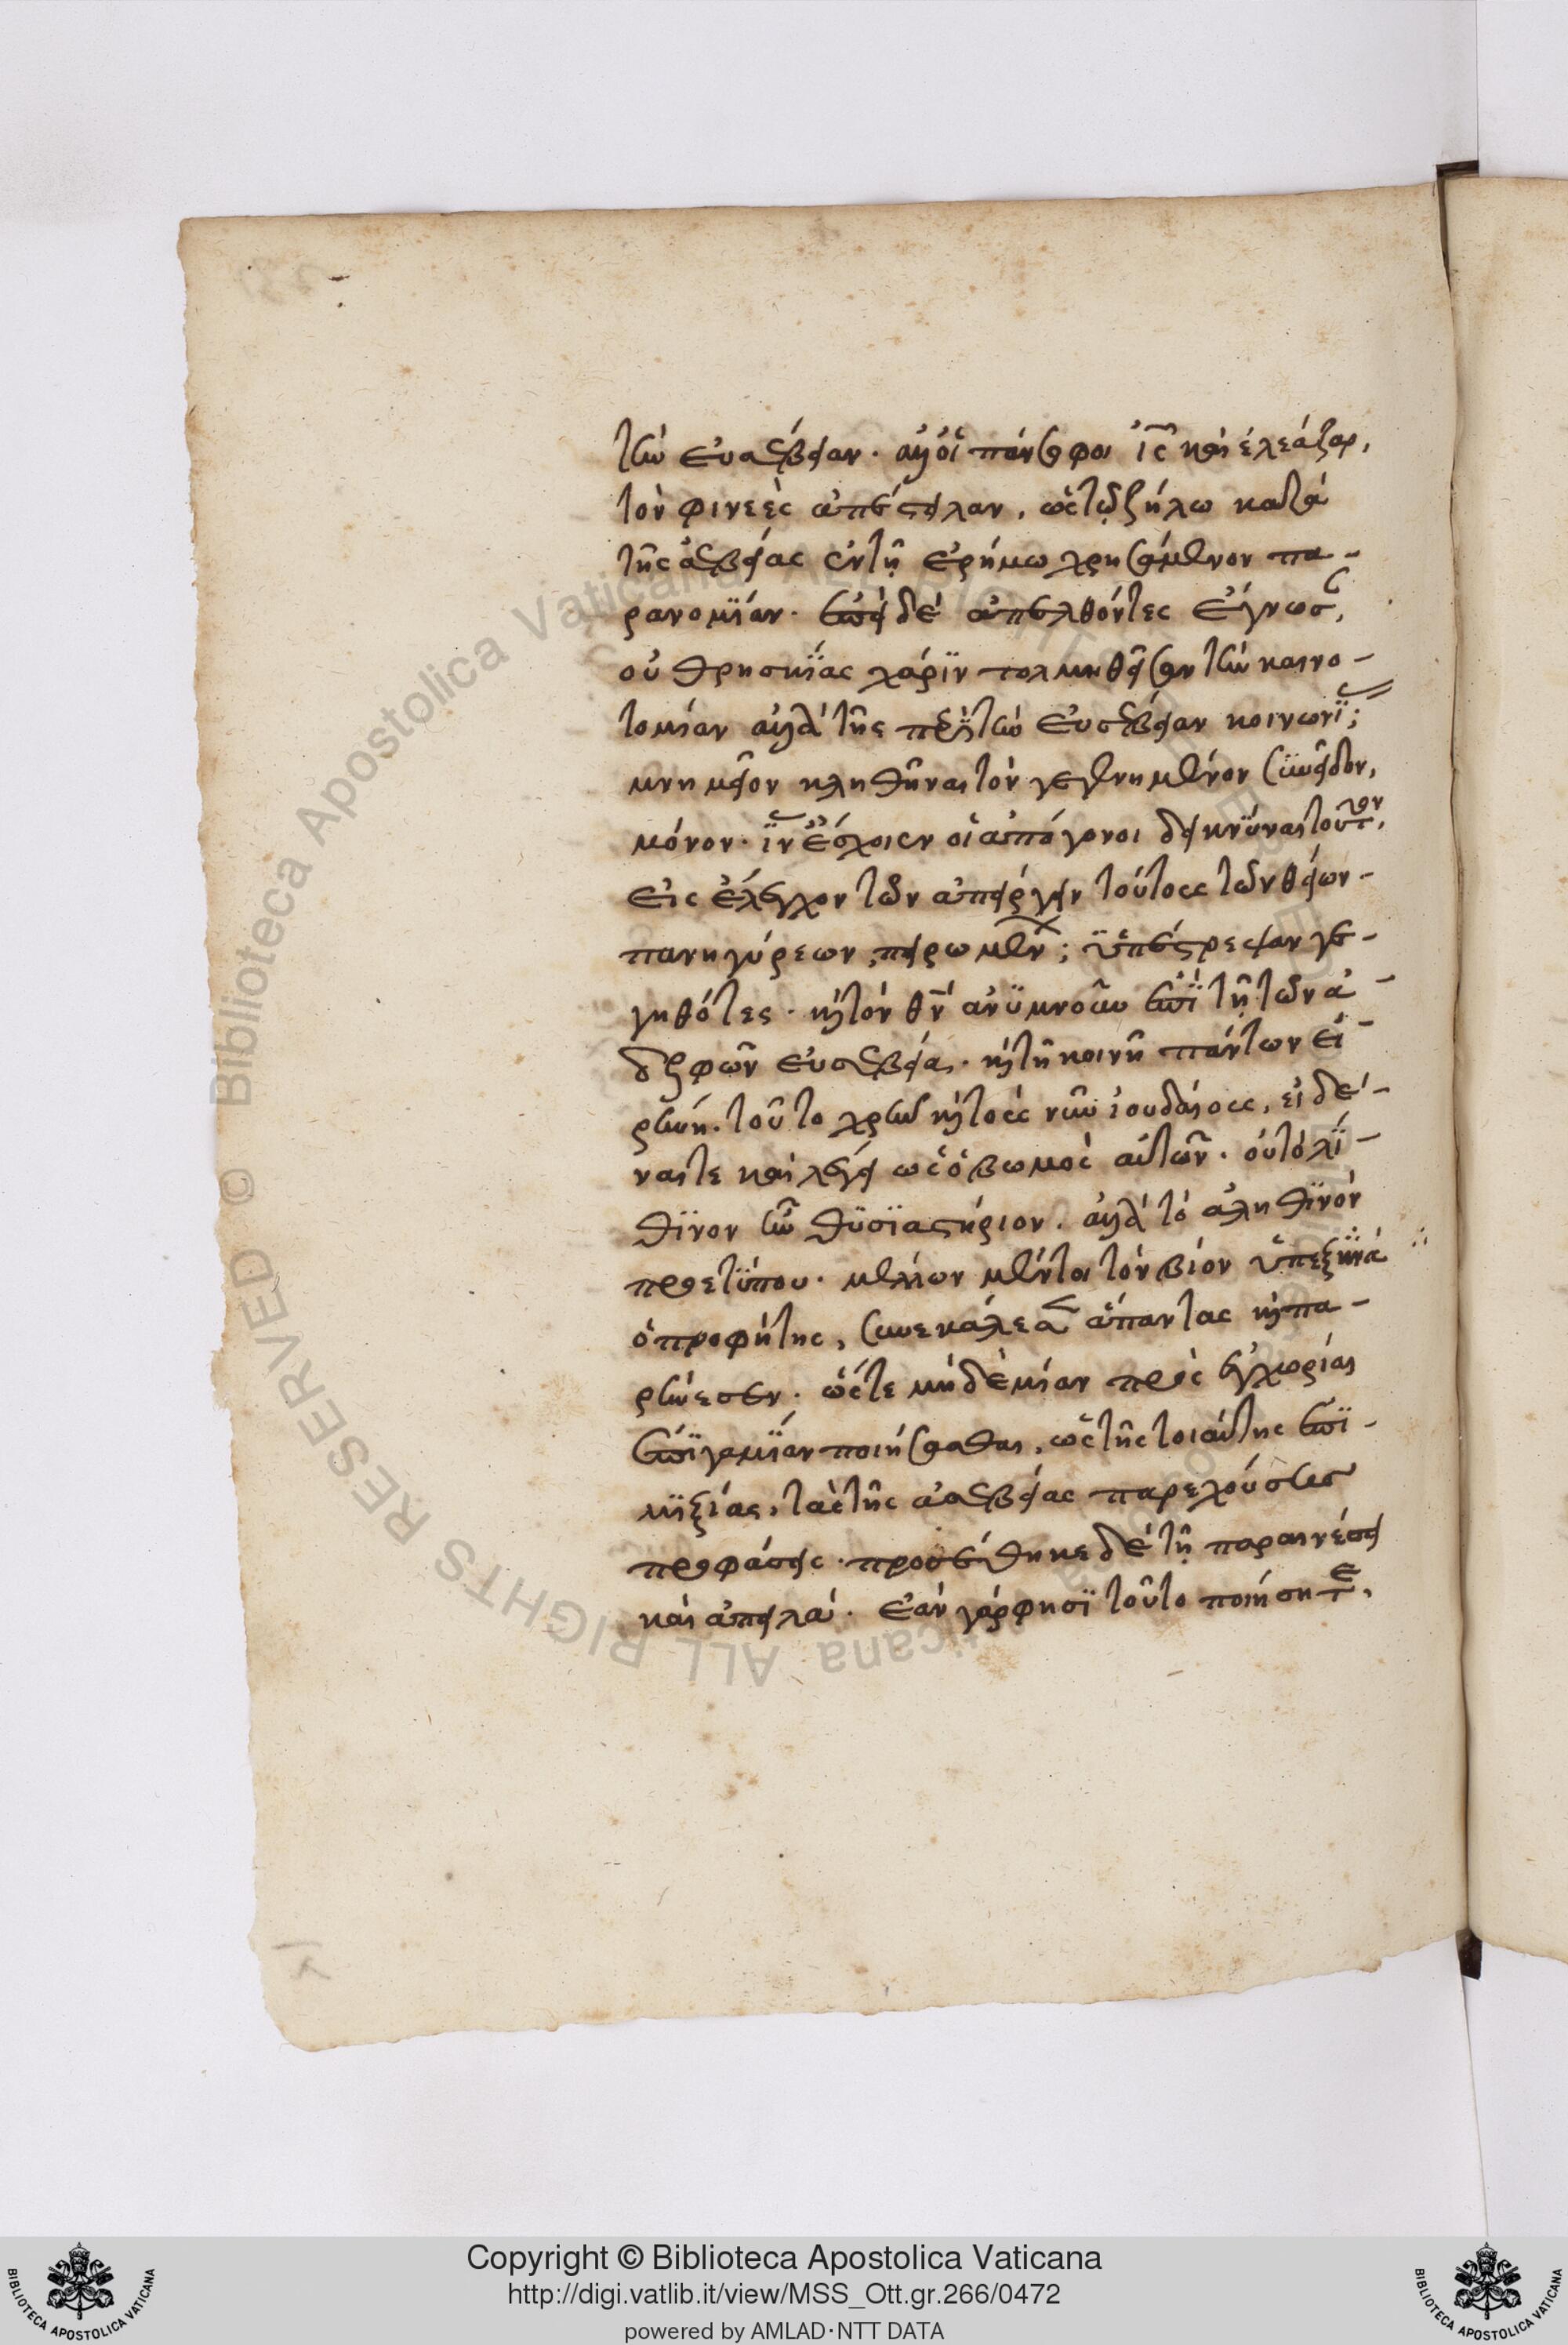 τὴν εὐσέβειαν. ἀλλ' οἱ πάνσοφοι ἰς καὶ ἐλεάζαρ,
τὸν φινεὲς ἀπέστειλαν, ὡς τῷ ζήλω κατὰ
τῆς ἀσεβείας ἐν τῇ ἐρήμω χρησάμενον πα-
ρανομϊάν. ἐπεὶ δὲ ἀπελθόντες ἔγνωσ,
οὐ θρησκϊας χάρϊν τολμηθεῖσαν τὴν καινο-
τομίαν ἀλλὰ τῆς περὶ τὴν εὐσέβειαν κοινωνϊ;
μνημεῖον κληθῆναι τὸν γεγενημένον
μόνον. ϊν ἔχοιεν οἱ ἀπόγονοι δεικνϋναι τοῦτον,
εἰς ἔλεγχον τῶν ἀπείργειν τούτους τῶν θείων-
πανηγύρεων, πειρωμέν; ϋπέστρεψαν γε-
γηθότες. καὶ τὸν θν ἀνϋμνουν ἐπϊ τῇ τῶν ἀ-
δελφῶν εὐσεβείαι. καὶ τῆ κοινῆ πάντων εἰ-
ρήνη. τοῦτο χρὴ καὶ τοὺς νῦν ἰουδαίους, εἰδέ-
ναι τε καὶ λέγει ὡς ὁ βωμὸς αὐτῶν. οὐ τὸ λϊ-
θϊνον ἦν θϋσϊαστήριον. ἀλλὰ τὸ ἀληθϊνὸν
προετϋπου. μέλλων μέντοι τὸν βίον ϋπεξϊέναι
ὁ προφήτης, συνεκάλεσ ἅπαντας καὶ πα-
ρήνεσεν. ὥστε μηδὲμίαν πρὸς ἐγχωρίαι
ἐπϊγαμϊαν ποιήσασθαι, ὡς τῆς τοιαύτης ἐπϊ-
μϊξίας, τὰς τῆς ἀσεβείας παρεχούσης
προφάσεις. προστέθηκε δὲ τῇ παραινέσει
καὶ ἀπειλὰ. ἐὰν γάρ φησϊ τοῦτο ποιήσητε,
Copyright © Biblioteca Apostolica Vaticana
http://digi.vatlib.it/view/MSS_Ott.gr.266/0472
powered by AMLAD·NTT DATA